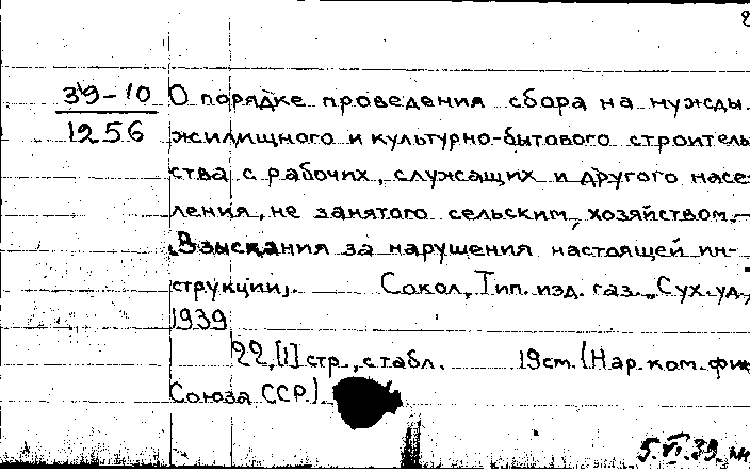 39-10
1256
О порядке проведения сбора на нужды
жилищного и культурно-бытового строитель
ства с рабочих, служащих и другого насе
ления, не занятого сельским хозяйством.-
„Взыскания за нарушения настоящей ин-
струкции„. Сокол, Тип. изд. газ. „Сух. уд„
1939
22, [1] стр., с табл. 19см. (Нар. ком. фин
Союза ССР).
5.VI.39